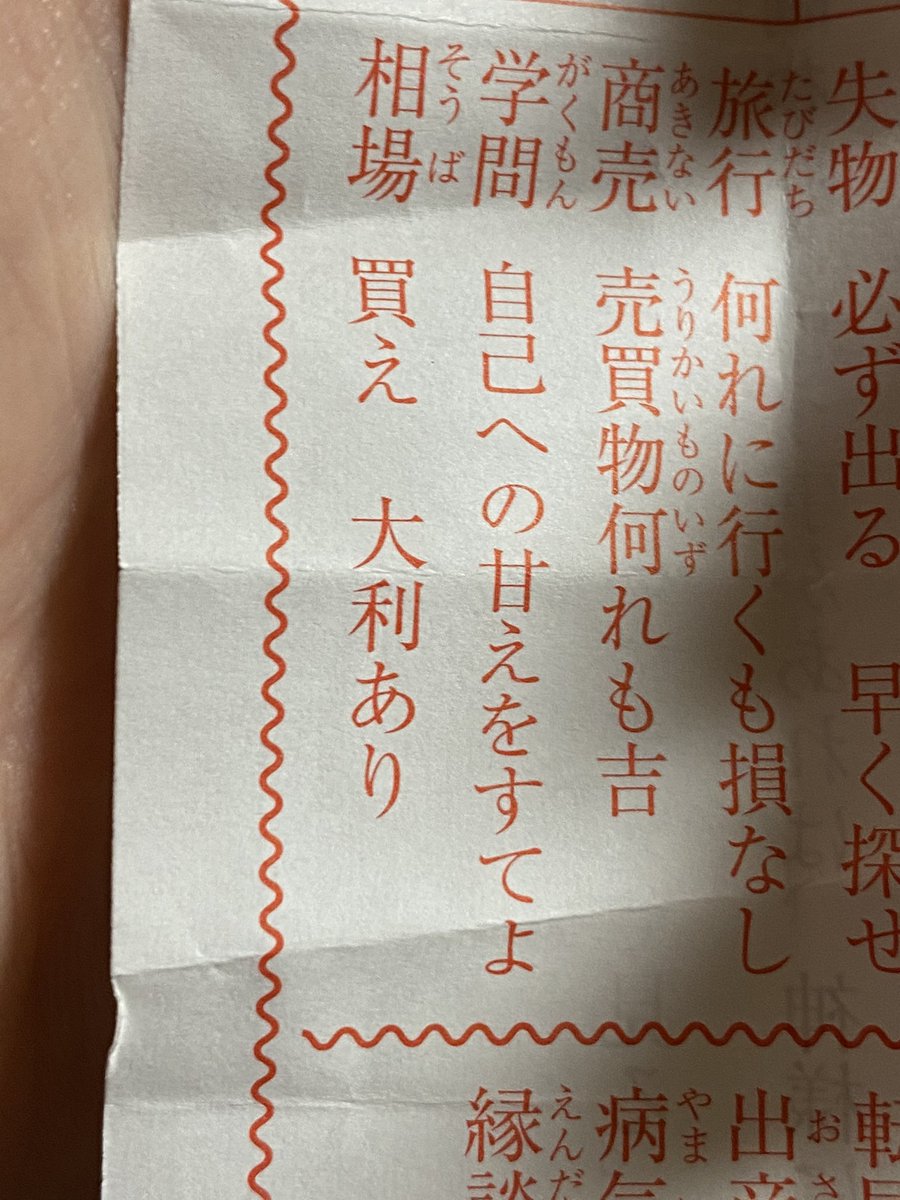 失物 必ず出る 早く探せ
旅行 何れに行くも損なし
たびだち
商売 売買物何れも吉
あきない うりかいものいず
学問 自己への甘えをすてよ
がくもん
相場 買え 大利あり
そうば
出
お
病気
やま
縁談
えんだ